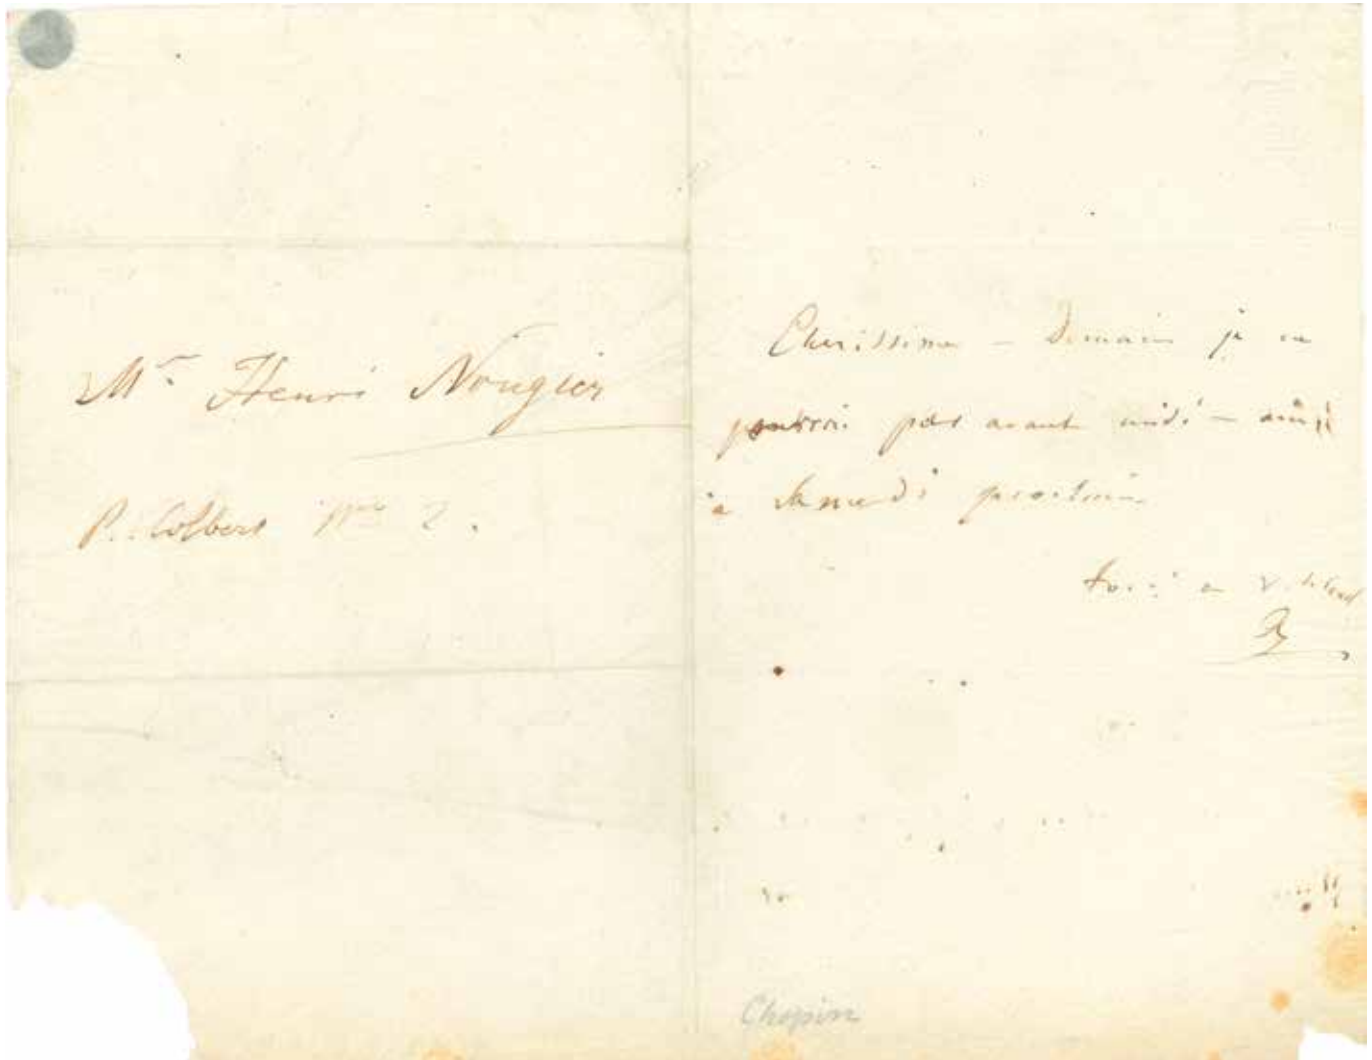 Mr Henri Nougier
P. Colbert No 2.
Cherissime – Demain je ne
pourrai pas avant midi – ainsi
a Samedi prochain
à v.
Chopin